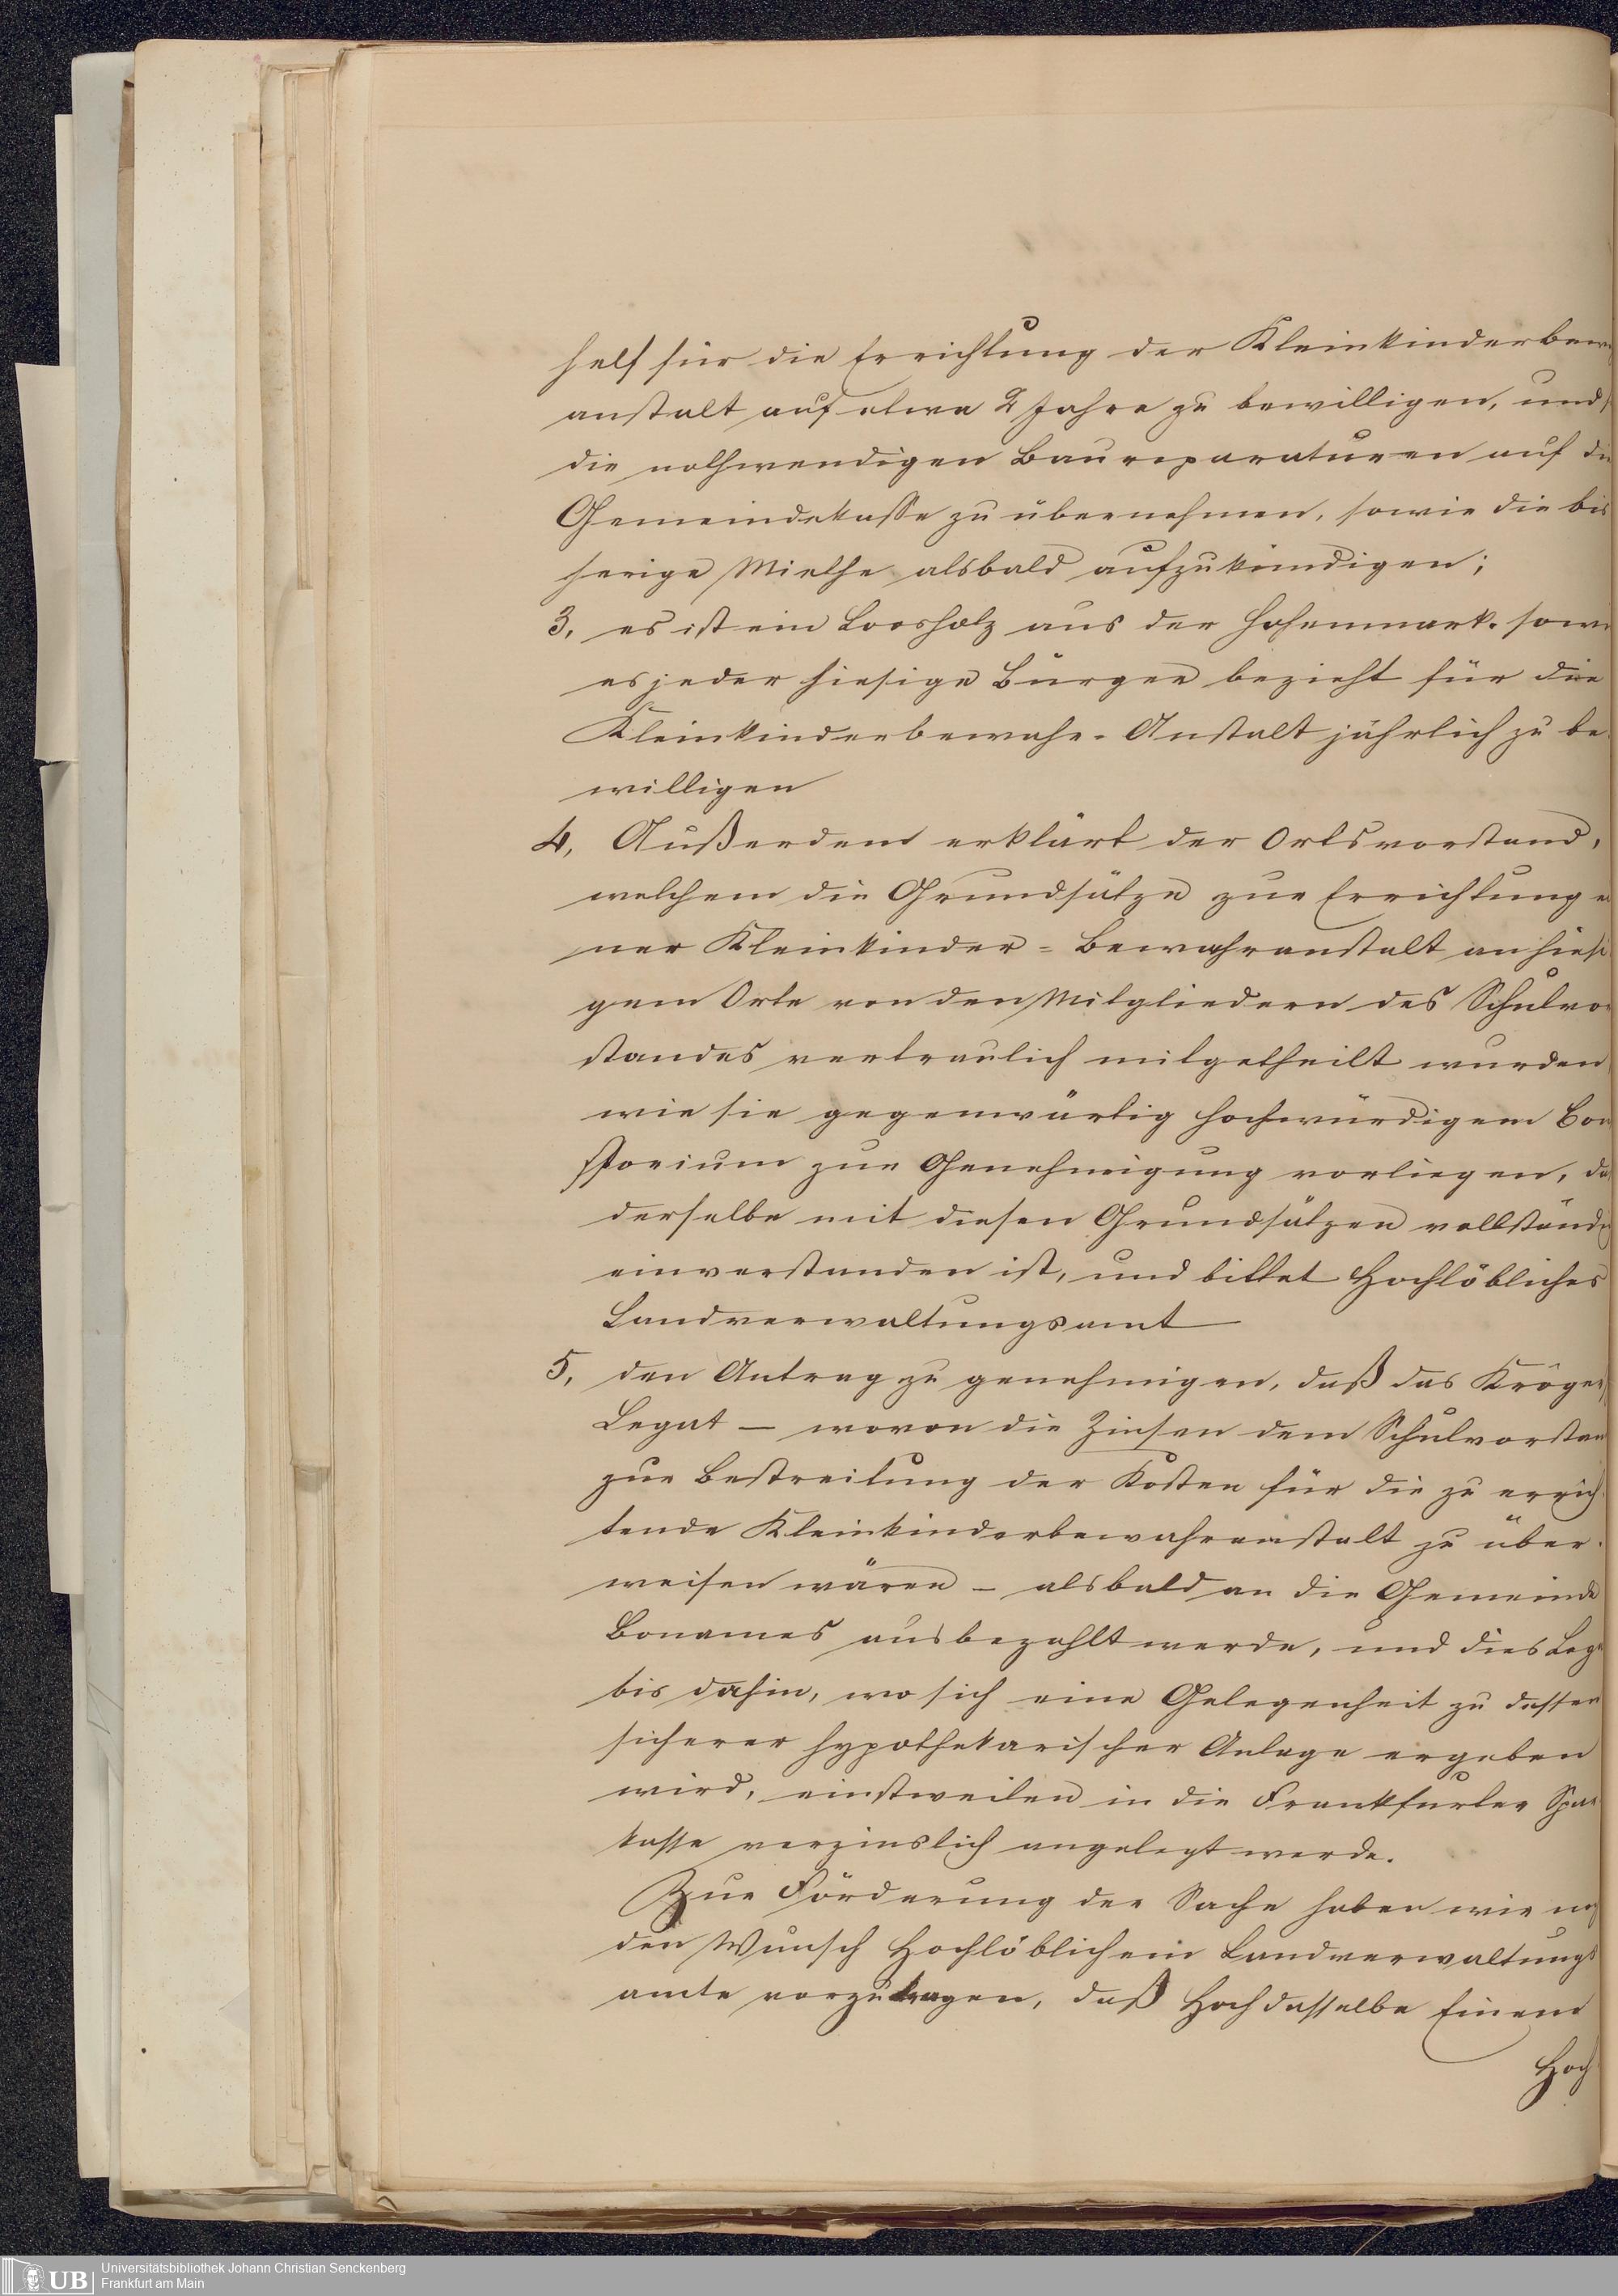 helf für die Errichtung der Kleinkinderbew
anstalt auf etwa 2 Jahre zu bewilligen, und
die nothwendigen Baureparaturen auf die
Gemeindekasse zu übernehmen, sowie die bis
herige Miethe alsbald aufzukündigen;
3, es ist ein Loosholz aus der Hohenmark. sowie
es jeder hiesige Bürger bezieht für die
Kleinkinderbewahr-Anstalt jährlich zu be
willigen
4, Außerdem erklärt der Ortsvorstand,
welchem die Grundsätze zur Errichtung ei
ner Kleinkinder=Bewahranstalt an hiesi
gem Orte von den Mitgliedern des Schulvor
standes vertraulich mitgetheilt wurden
wie sie gegenwärtig hochwürdigem Con
storium zur Genehmigung vorliegen, da
derselbe mit diesen Grundsätzen vollständ
einverstanden ist, und bittet Hochlöbliches
Landverwaltungsamt
5, den Antrag zu genehmigen, daß das Kröger
Legat – wovon die Zinsen dem Schulvorstan
zur Bestreitung der Kosten für die zu errich
tende Kleinkinderbewahranstalt zu über
weisen wären – alsbald an die Gemeinde
Bonames ausbezahlt werde, und dies Leg
bis dahin, wo sich eine Gelegenheit zu dessen
sicherer hypothekarischer Anlage ergeben
wird, einstweilen in die Frankfurter Spar
kasse verzinslich angelegt werde.
Zur Förderung der Sache haben wir no
den Wunsch Hochlöblichem Landverwaltungs
amte vorzutragen, daß Hochdasselbe Einem
Hoch
UB
Universitätsbibliothek Johann Christian Senckenberg
Frankfurt am Main